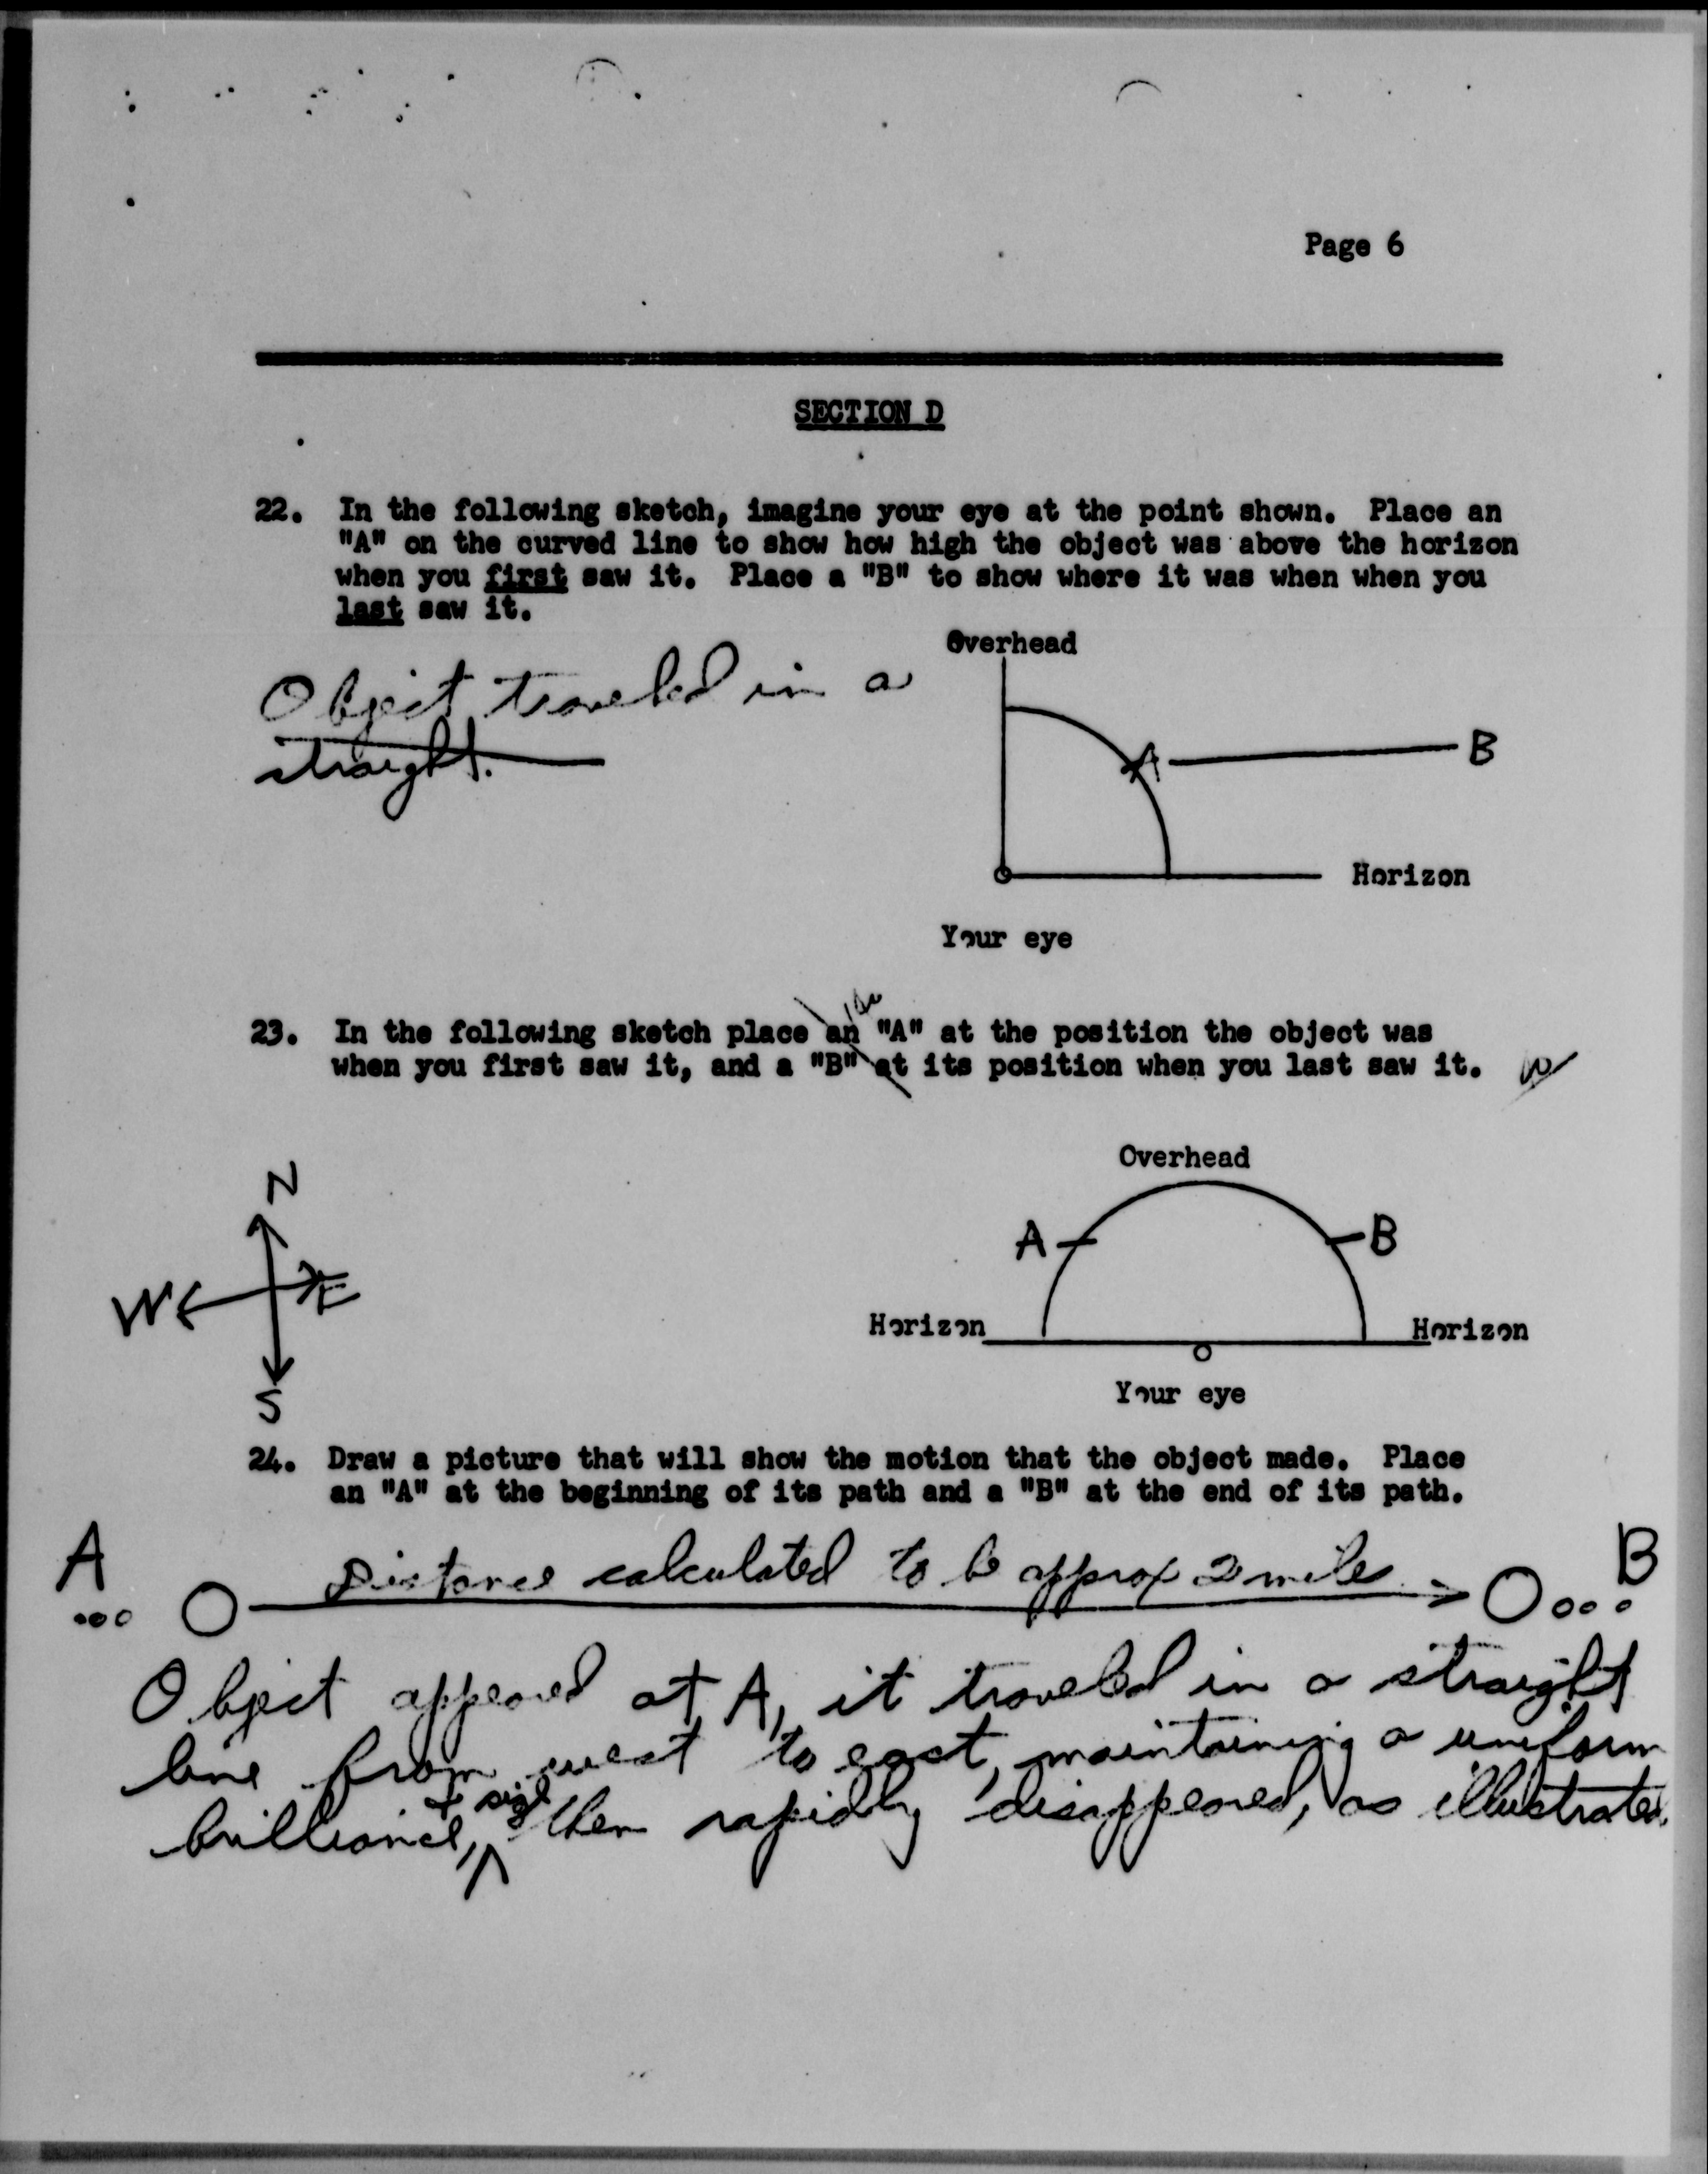 Page 6
SECTION D
22. In the following sketch, imagine your eye at the point shown. Place an
"A" on the curved line to show how high the object was above the horizon
when you first saw it. Place a "B" to show where it was when when you
last saw it.
Overhead
Object traveled in a
straight.
A
B
Horizon
Your eye
23. In the following sketch place an "A" at the position the object was
when you first saw it, and a "B" at its position when you last saw it.
N
W
E
S
Overhead
A
B
Horizon
Horizon
Your eye
24. Draw a picture that will show the motion that the object made. Place
an "A" at the beginning of its path and a "B" at the end of its path.
A
Distance calculated to be approx 2 miles
B
Object appeared at A, it traveled in a straight
line from west to east, maintaining a uniform
brilliance, + size then rapidly disappeared, as illustrated.